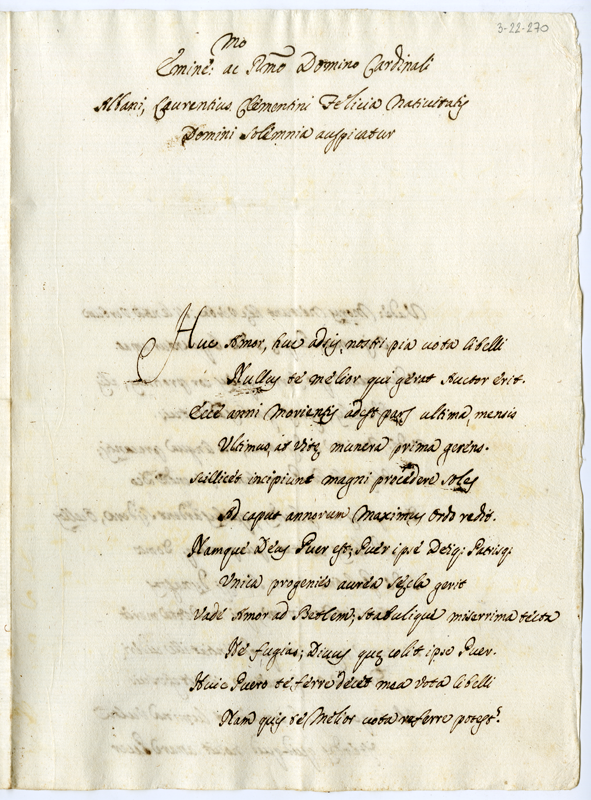 3-22-270
mo
Emine: ac Rmo Domino Cardinali
Albani, Laurentius Clementini Felicia Nativitatis
Domini Solemnia auspicatur
Huc Amor, huc adsis, nostri pia vota libelli
Nullus te melior qui gerat Auctor erit.
Ecce anni morientis adest pars ultima, mensis
Ultimus, at vitę munera prima gerens.
scillicet incipiunt magni procedere soles
Ad caput annorum Maximus Ordo redit.
Namque Deus Puer est; Puer ipse Deiq; Patrisq;
Unica progenies aurea Sęcla gerit
Vade Amor ad Betlem; stabulique miserrima tecta
Ne fugias; Divus quę colit ipse Puer.
Huic Puero te ferre decet mea vota libelli
Nam quis te Melior vota referre potest?